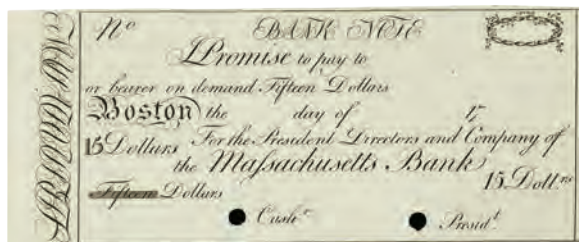 No BANK NOTE
I Promise to pay to
or bearer on demand Fifteen Dollars
Boston the day of 17
15 Dollars For the President Directors and Company of
the Maſsachusetts Bank
15 Doll.rs
Fifteen Dollars
Cash.r Presid.t